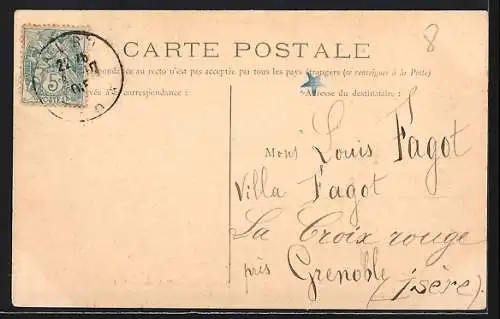 8
CARTE POSTALE
correspondance au recto n'est pas acceptée par tous les pays étrangers (se renseigner à la Poste)
à la correspondance :
Adresse du destinataire :
5
Mons Louis Fagot
Villa Fagot
La Croix rouge
près Grenoble
(Isère)